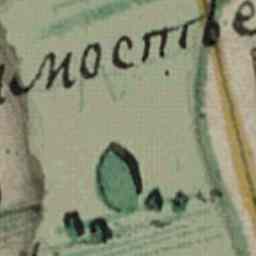 мостье